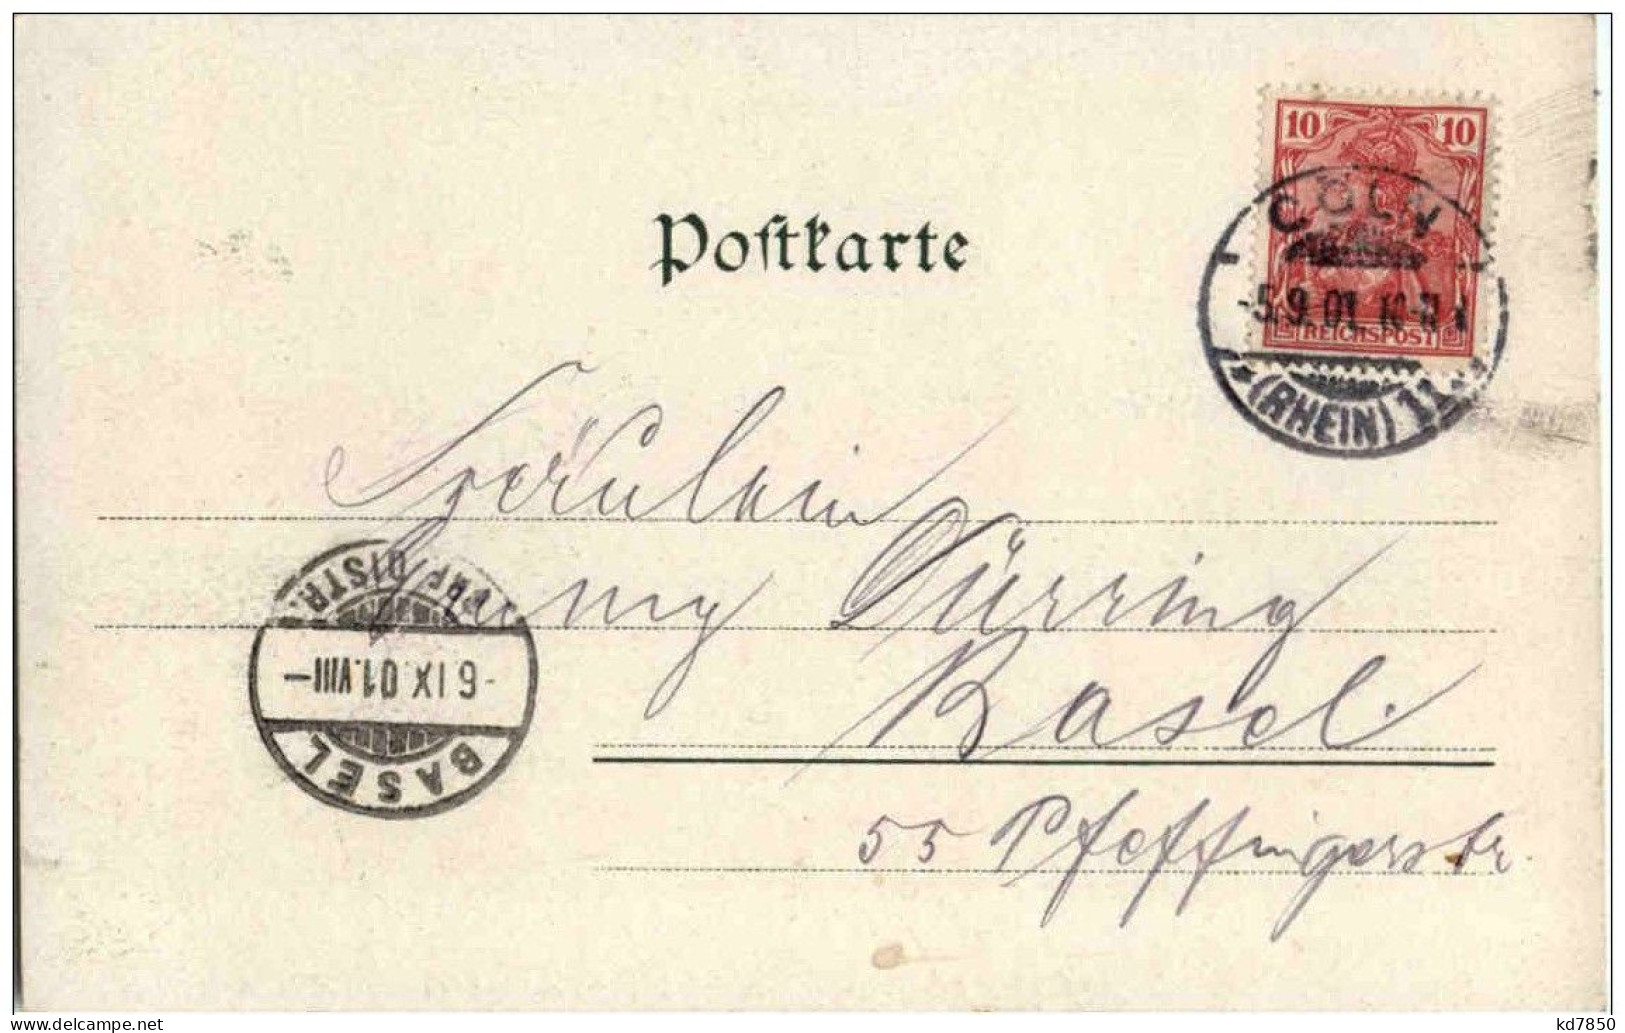 10 10
CÖLN
Postkarte
-5.9.01. 10-11 V
REICHSPOST
* (RHEIN) 11 *
Fräulein
Dürring
BRF. DISTR.
-6.IX.01.VIII-
BASEL
Basel.
55 Pfeffingerstr.
kd7850